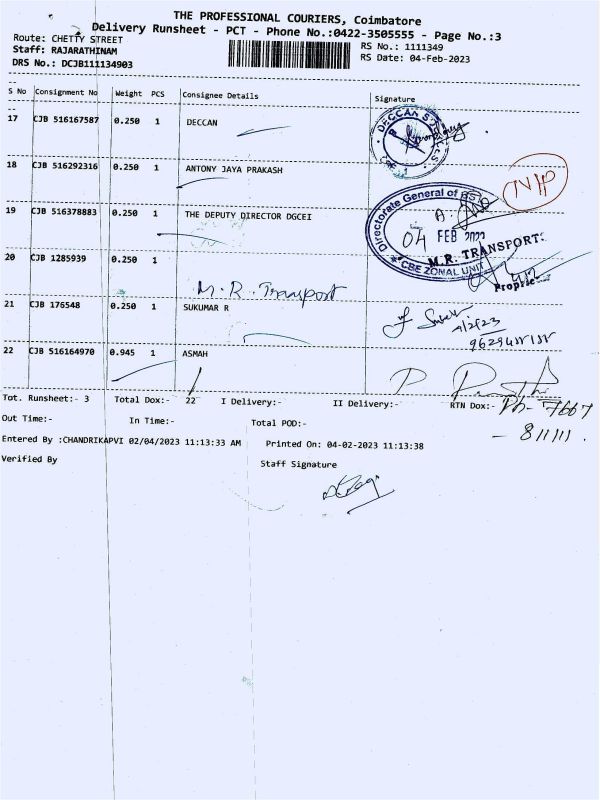 THE PROFESSIONAL COURIERS, Coimbatore
Delivery Runsheet - PCT - Phone No.:0422-3505555 - Page No.:3
Route: CHETTY STREET
RS No.: 1111349
Staff: RAJARATHINAM
RS Date: 04-Feb-2023
DRS No.: DCJB111134903
S No Consignment No Weight PCS Consignee Details Signature
17 CJB 516167587 0.250 1 DECCAN
18 CJB 516292316 0.250 1 ANTONY JAYA PRAKASH
19 CJB 516378883 0.250 1 THE DEPUTY DIRECTOR DGCEI
Directorate General of
04 FEB
CBE ZONAL UNIT
M.R. TRANSPORT
20 CJB 1285939 0.250 1
M. R. Transport
21 CJB 176548 0.250 1 SUKUMAR R
4/2/23
22 CJB 516164970 0.945 1 ASMAH
Tot. Runsheet:- 3 Total Dox:- 22 I Delivery:- II Delivery:- RTN Dox:-
Ph- 7667
- 811111.
Out Time:- In Time:- Total POD:-
Entered By :CHANDRIKAPVI 02/04/2023 11:13:33 AM Printed On: 04-02-2023 11:13:38
Verified By Staff Signature